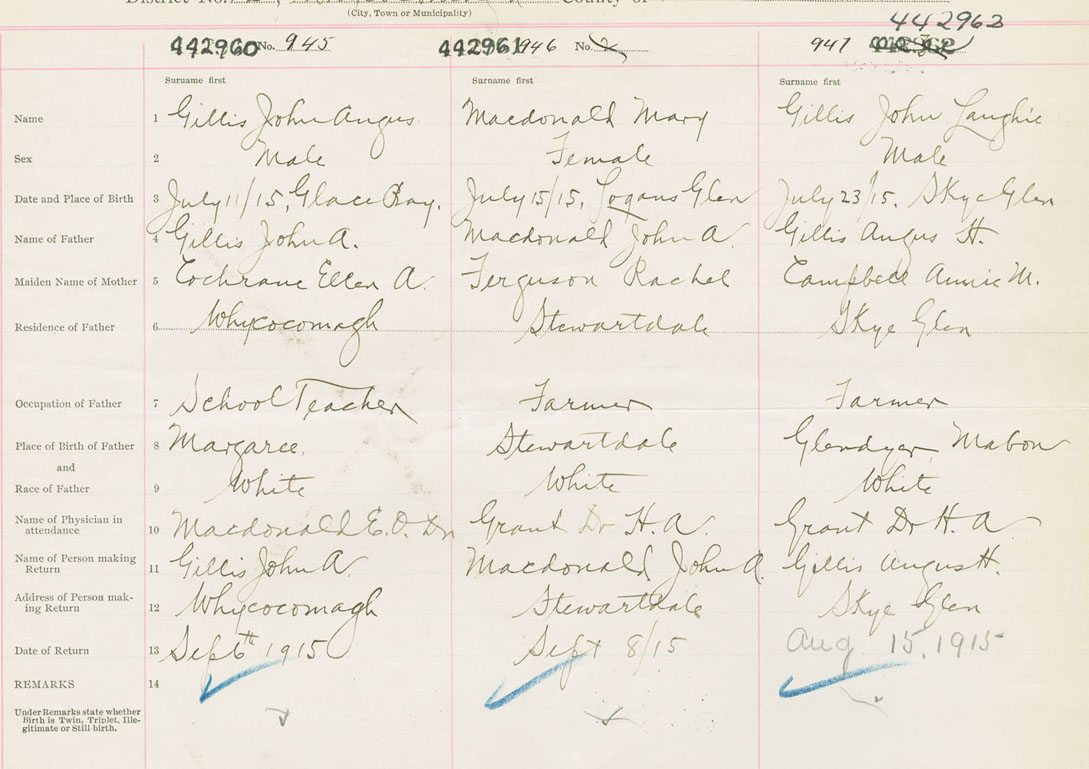 District No. County of
(City, Town or Municipality)
442960 No. 945 442961 946 No. 947 442963
Surname first Surname first Surname first
Name 1 Gillis John Angus Macdonald Mary Gillis John Laughie
Sex 2 Male Female Male
Date and Place of Birth 3 July 11/15, Glace Bay. July 15/15, Logans Glen July 23/15. Skye Glen
Name of Father 4 Gillis John A. Macdonald John A. Gillis Angus H.
Maiden Name of Mother 5 Cochrane Ellen A. Ferguson Rachel Campbell Annie M.
Residence of Father 6 Whycocomagh Stewartdale Skye Glen
Occupation of Father 7 School Teacher Farmer Farmer
Place of Birth of Father 8 Margaree. Stewartdale Glendyer Mabou
and
Race of Father 9 White White White
Name of Physician in
attendance 10 Macdonald E.O. Dr Grant Dr H. A. Grant Dr H. A
Name of Person making
Return 11 Gillis John A. Macdonald John A. Gillis Angus H.
Address of Person mak-
ing Return 12 Whycocomagh Stewartdale Skye Glen
Date of Return 13 Sep 6th 1915 Sept 8/15 Aug 15, 1915
REMARKS 14
Under Remarks state whether
Birth is Twin, Triplet, Ille-
gitimate or Still-birth.